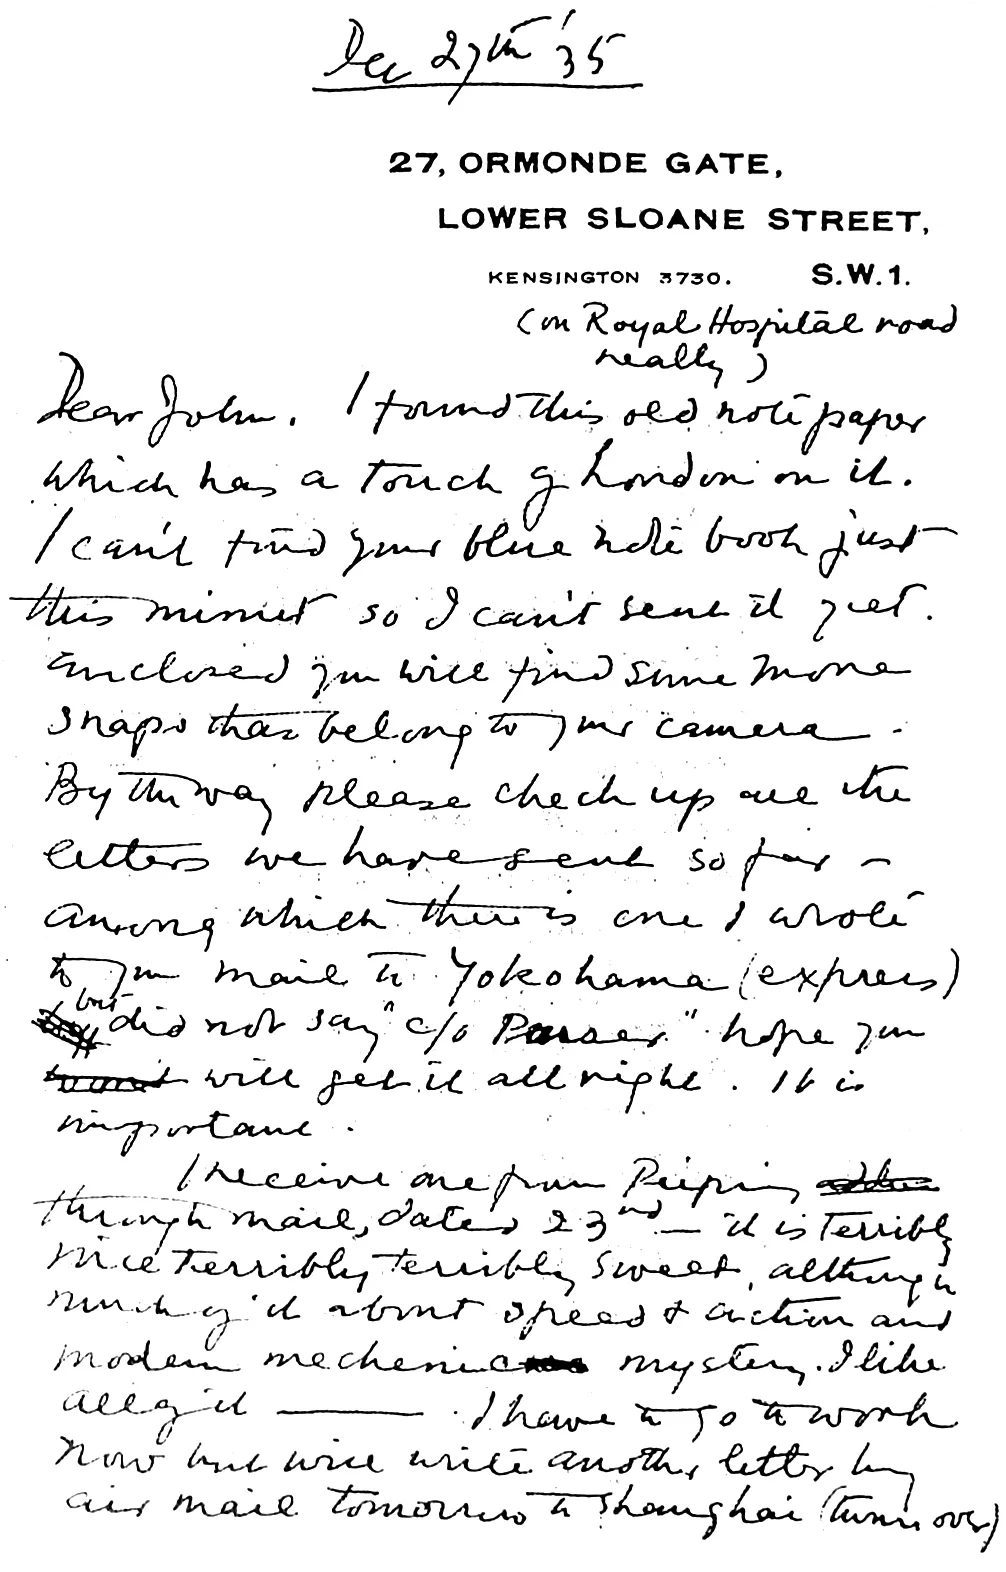 Dec 27th '35
27, ORMONDE GATE,
LOWER SLOANE STREET,
KENSINGTON 3730. S.W.1.
(on Royal Hospital road
really)
Dear John. I found this old note paper
which has a touch of London on it.
I can't find your blue note book just
this minut so I can't sent it yet.
Enclosed you will find some more
snaps that belong to your camera.
By the way please check up all the
letters we have sent so far –
among which there is one I wrote
to you mail to Yokohama (express)
but did not say "c/o " hope you
will get it all right. It is
important.
I receive one from Peiping
through mail, dated 23nd — it is terribly
nice terribly terribly sweet, although
much of it about speed & action and
modern mechenic mystery. I like
all of it —— I have to go to work
now but will write another letter by
air mail tomorrow to Shanghai (turn over)